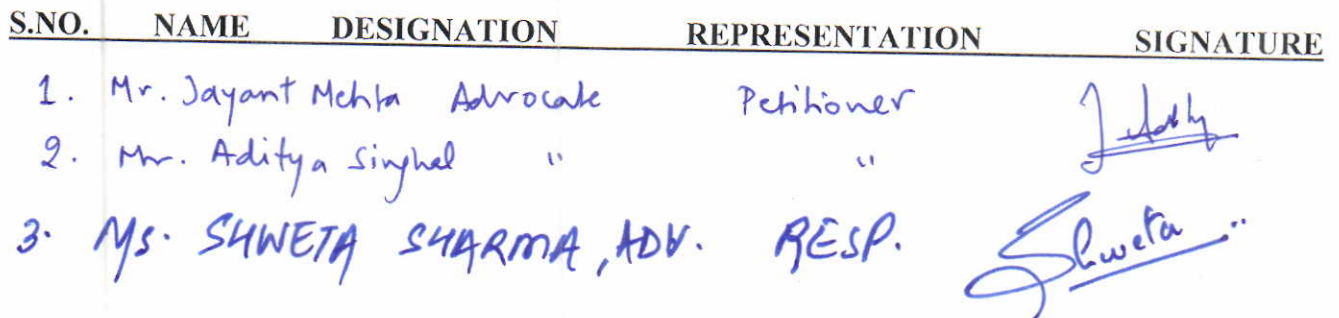 S.NO. NAME DESIGNATION REPRESENTATION SIGNATURE
1. Mr. Jayant Mehta Advocate Petitioner
2. Mr. Aditya Singhal " "
3. Ms. SHWETA SHARMA, ADV. RESP. Shweta